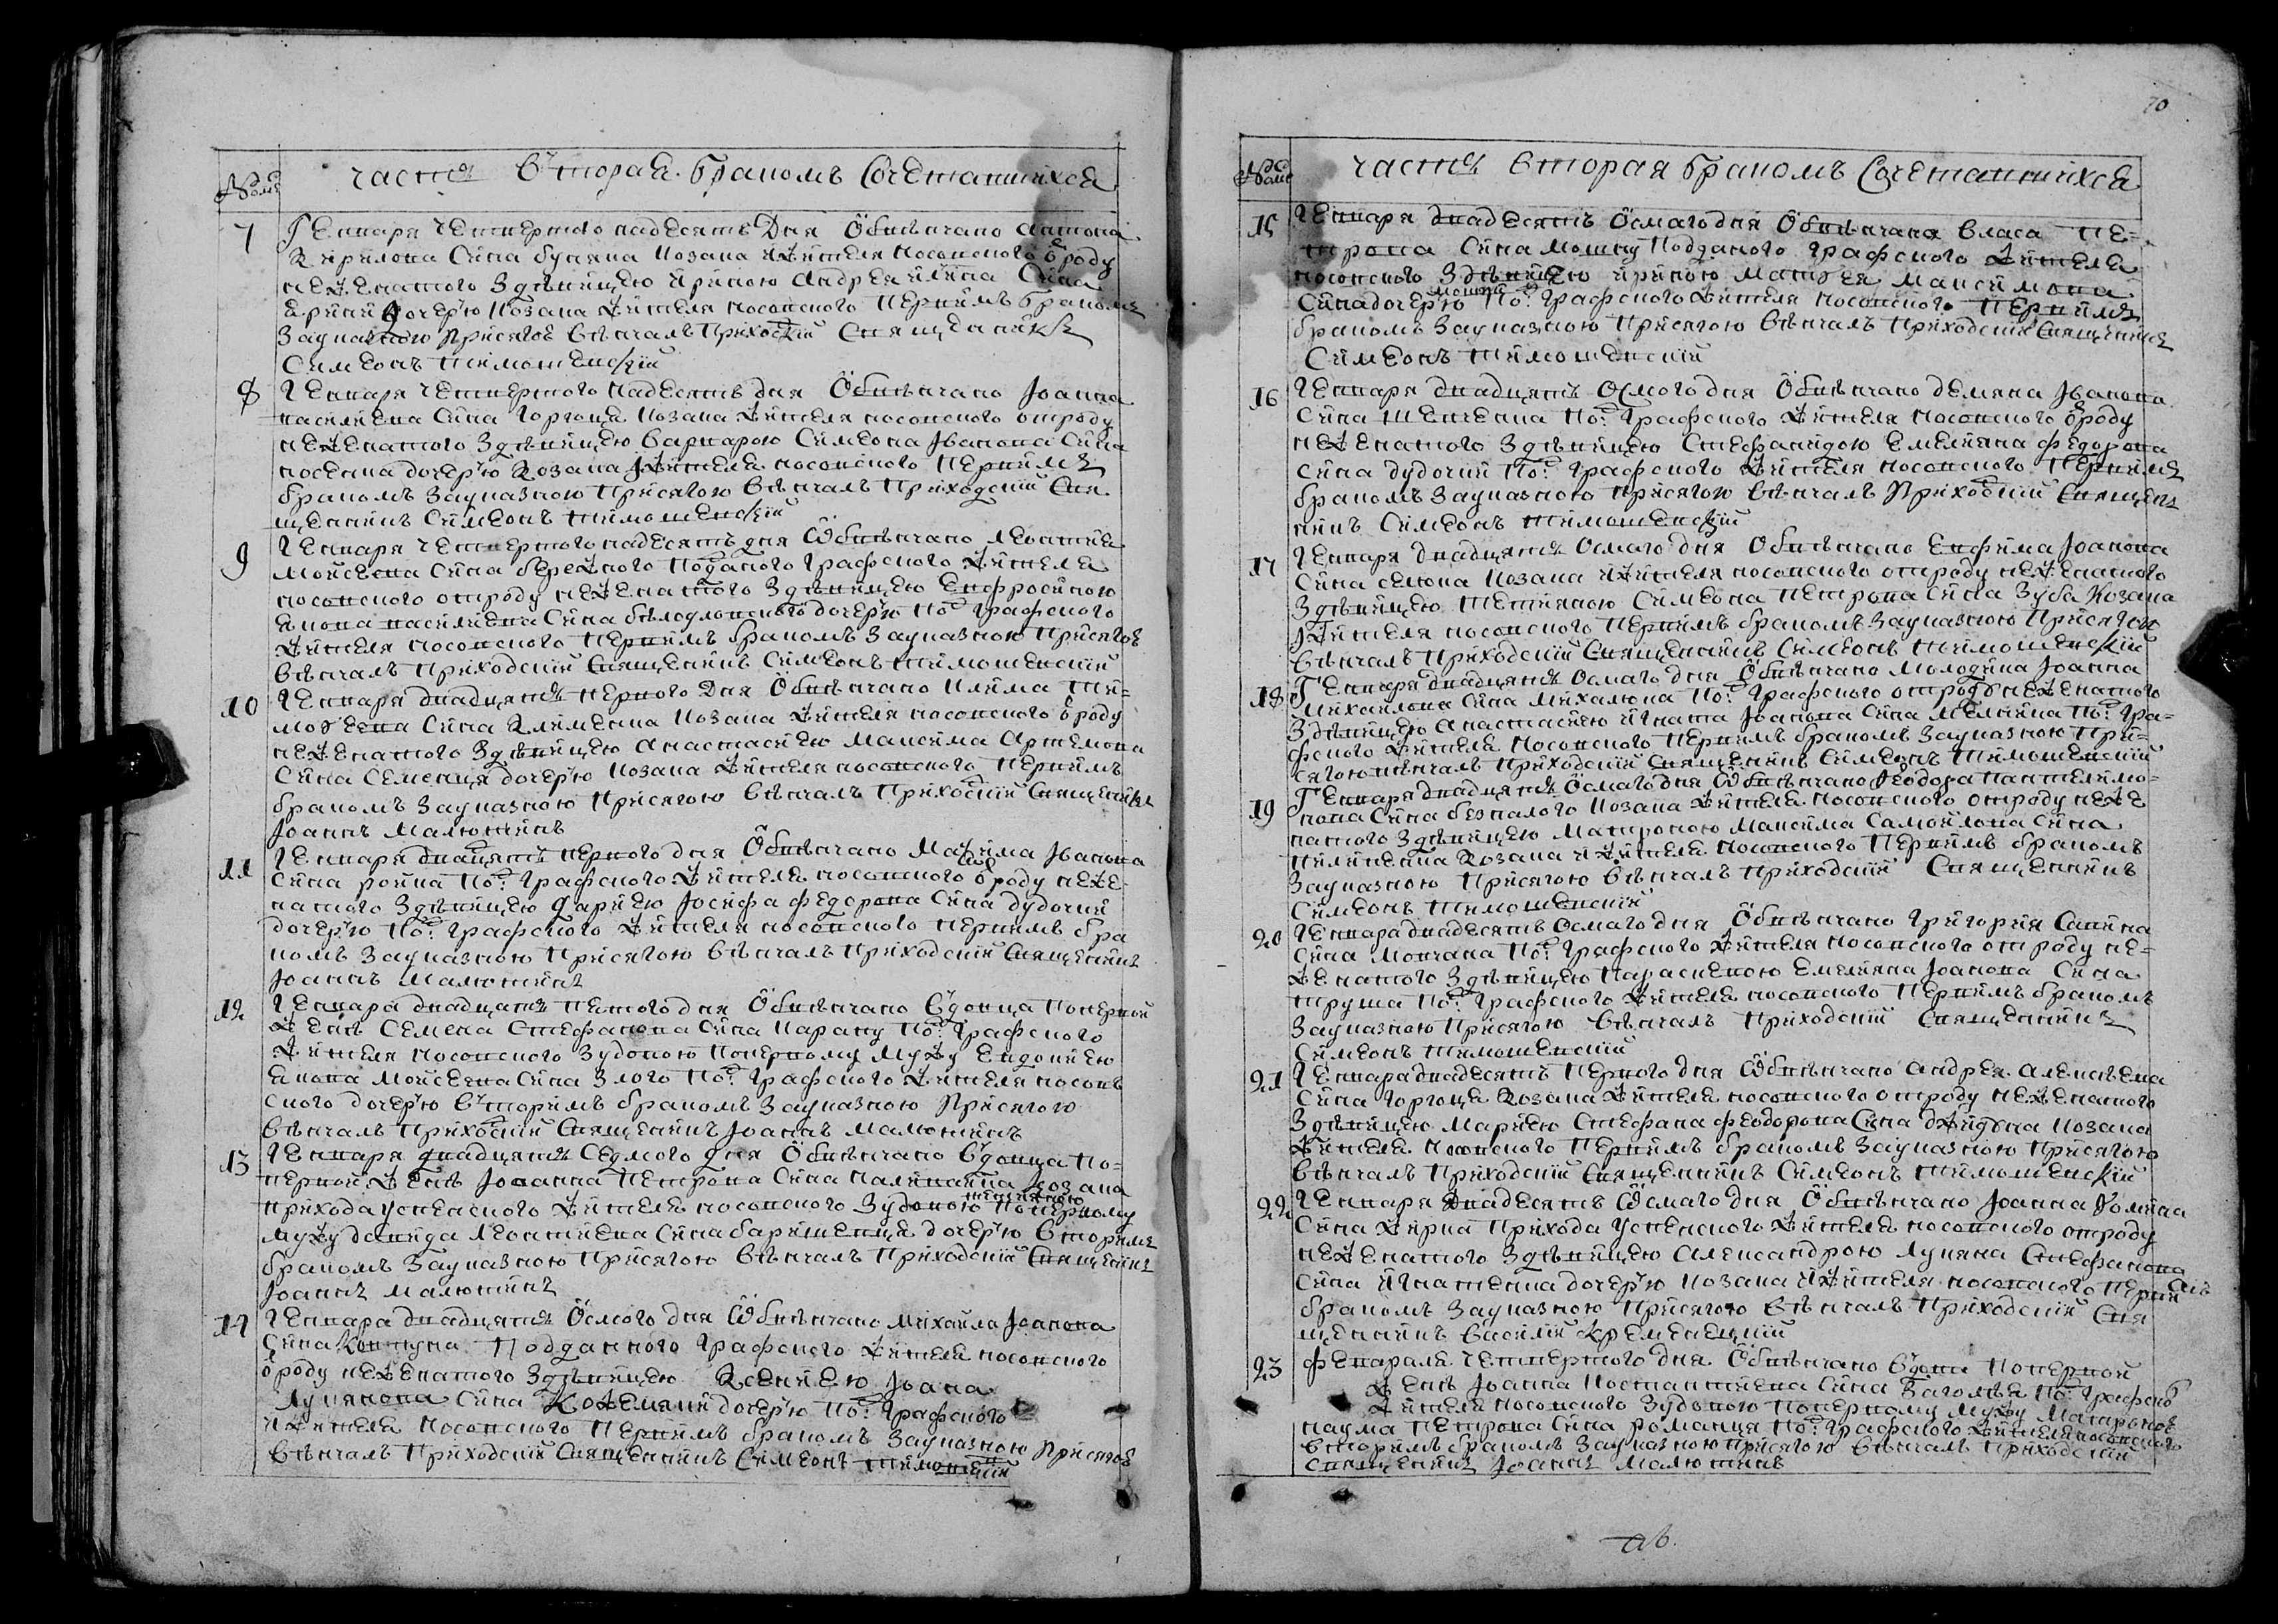 № домъ
часть вторая бракомъ Сочетавшихся
7
Генваря четвертого надесять Дня Обвѣнчано антона
Кирилова Сина буняка козака жителя носовского ѿроду
неженатого Здѣвицею ириною Андрея
дочерю козака жителя носовского первимъ бракомъ
Зауказною присягою вѣнчалъ приходский Священникъ
Симеонъ тимошевский
8
Генваря четвертого надесять дня Обвѣнчано Іоанна
василиева Сина горгоца козака жителя носовского отроду
неженатого Здѣвицею варварою Симеона Іванова Сина
дочерю козака жителя носовского первимъ
бракомъ Зауказною присягою вѣнчалъ приходский Свя
щенникъ Симеонъ тимошевский
9
Генваря четвертого надесять дня Обвѣнчано леонтия
Мойсѣева Сина бережного подданого графского жителя
носовского отроду неженатого Здѣвицею Евфросиною
василиева Сина дочерю под графского
жителя носовского первимъ бракомъ Зауказною присягою
вѣнчалъ приходский священникъ Симеонъ тимошевский
10
Генваря двадцять первого Дня Обвѣнчано клима ти=
мофеева Сина Клименка козака жителя носовского ѿроду
неженатого Здѣвицею анастасиею максима артемова
Сина Семенца дочерю козака жителя носовского первимъ
бракомъ Зауказною присягою вѣнчалъ приходский Священникъ
Іоаннъ малютинъ
11
Генваря двадцять первого дня Обвѣнчано Іванова
Сина под графского жителя носовского ѿроду неже-
натого Здѣвицею дариею Іосифа федорова Сина дудочки
дочерю под графского жителя носовского первимъ бра
комъ Зауказною присягою вѣнчалъ приходский священникъ
Іоаннъ малютинъ
12
Генвара двадцять пятого дня Обвѣнчано вдовца попервой
женѣ Семена Стефанова Сина под графского
жителя носовского Зудовою попервому мужу Евдокиею
якова мойсеева Сина Злого под графского жителя носов
ского дочерю вторимъ бракомъ Зауказною присягою
вѣнчалъ приходский священникъ Іоаннъ малютинъ
13
Генваря двадцять Седмого дня Обвѣнчано вдовца по=
первой женѣ Іоанна петрова Сина козака
прихода успенского жителя носовского Зудовою попервому
мужу давида леонтиева Сина баришевца дочерю вторимъ
бракомъ Зауказною присягою вѣнчалъ приходский священникъ
Іоаннъ малютинъ
14
Генвара двадцять Осмого дня Обвѣнчано михайла Іоанова
Сина подданного графского жителя носовского
ѿроду неженатого Здѣвицею Ксениею Іоана
лукянова Сина Кожемяки дочерю под графского
жителя носовского первимъ бракомъ Зауказною присягою
вѣнчалъ приходский священникъ Симеонъ
70
№ домъ
часть вторая бракомъ Сочетавшихся
15
Генваря двадесять Осмагодня Обвѣнчано власа пе=
трова Сина подданого графского жителя
носовского Здѣвицею ириною матфея максимова
Сина дочерю под графского жителя носовского первимъ
бракомъ Зауказною присягою вѣнчалъ приходский священникъ
Симеонъ тимошевский
16
Генваря двадцять Осмого дня Обвѣнчано демяна Іванова
Сина шевченка под графского жителя носовского ѿроду
неженатого Здѣвицею Стефанидою Емелияна федорова
сина дудочки под графского жителя носовского первимъ
бракомъ Зауказною присягою вѣнчалъ приходский Священ
никъ Симеонъ тимошевский
17
Генваря двадцять Осмаго дня Обвѣнчано Евфима Іоанова
Сина козака жителя носовского отроду неженатого
Здѣвицею тетияною Симеона петрова Сина Зуба Козака
жителя носовского первимъ бракомъ Зауказною присягою
вѣнчалъ приходский Священникъ Симеонъ тимошевский
18
Генваря двадцять Осмаго дня Обвѣнчано Іоанна
михайлова Сина михалюка под графского отроду неженатого
Здѣвицею анастасиею игната Іоанова Сина мелника под гра=
фского жителя носовского первимъ бракомъ Зауказною при=
сягою вѣнчалъ приходский священникъ Симеонъ тимошевский
19
Генваря двадцять Осмагодня Обвѣнчано Феодора пантелимо=
нова Сина безпалого козака жителя носовского отроду неже
натого Здѣвицею матроною максима Самойлова Сина
Козака жителя носовского первимъ бракомъ
Зауказною присягою вѣнчалъ приходский Священникъ
Симеонъ тимошевский
20
Генвара двадесять Осмаго дня Обвѣнчано григория Савина
Сина мовчана под графского жителя носовского отроду не=
женатого Здѣвицею параскевою Емелияна Іоанова Сина
труша под графского жителя носовского первимъ бракомъ
Зауказною присягою вѣнчалъ приходский Священникъ
Симеонъ тимошевский
21
Генвара двадесять первого дня Обвѣнчано андрея алексѣева
Сина горгоца Козака жителя носовского отроду неженатого
Здѣвицею мариею Стефана феодорова Сина козака
жителя носовского первимъ бракомъ Зауказною присягою
вѣнчалъ приходский Священникъ Симеонъ тимошевский
22
Генваря двадесять Осмаго дня Обвѣнчано Іоанна Фомина
Сина прихода успенского жителя носовского отроду
неженатого Здѣвицею александрою лукяна Стефанова
Сина игнатенка дочерю козака жителя носовского первимъ
бракомъ Зауказною присягою вѣнчалъ приходский Свя
щенникъ василий кременецкий
23
февраля четвертого дня Обвѣнчано вдовца попервой
женѣ Іоанна костантиева Сина под графского
жителя носовского Зудовою попервому мужу матроною
наума петрова Сина романця под графского жителя носовского
вторимъ бракомъ Зауказною присягою вѣнчалъ приходский
священникъ Іоаннъ малютинъ